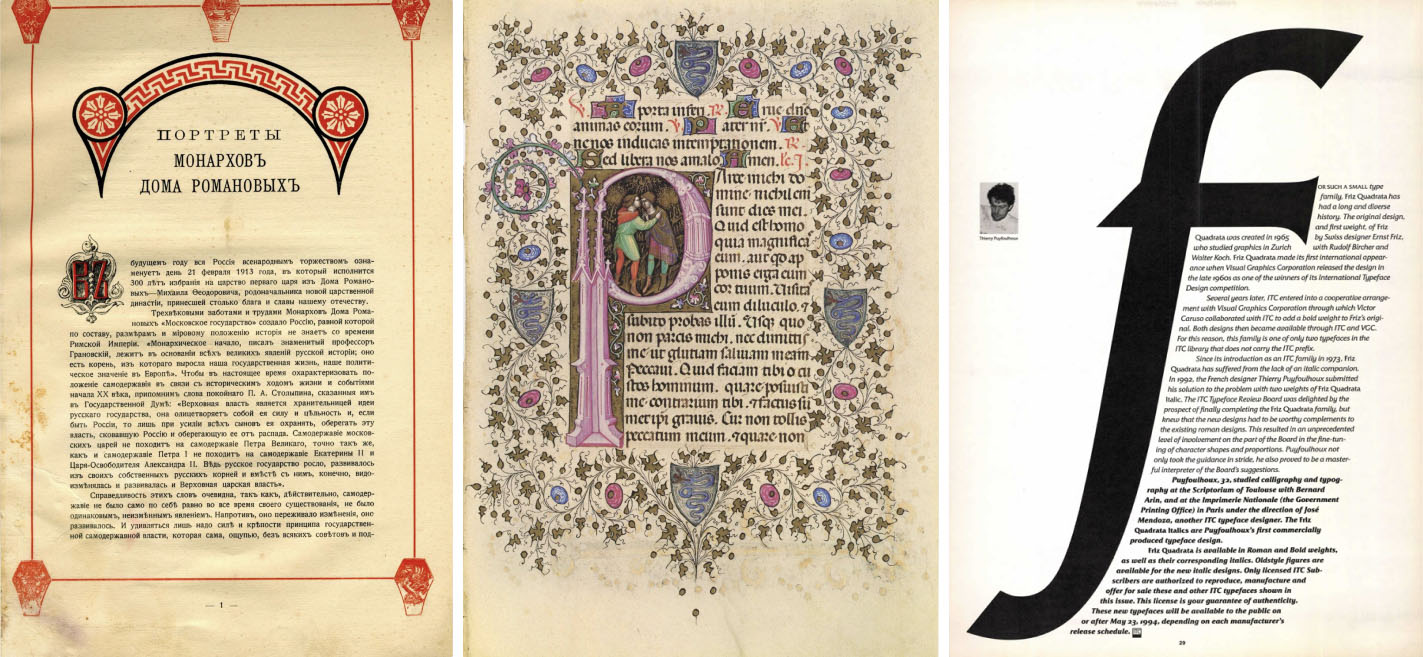 ПОРТРЕТЫ
МОНАРХОВЪ
ДОМА РОМАНОВЫХЪ
ВЪ будущемъ году вся Россія всенароднымъ торжествомъ озна-
менуетъ день 21 февраля 1913 года, въ который исполнится
300 лѣтъ избранія на царство перваго царя изъ Дома Романо-
выхъ—Михаила Ѳеодоровича, родоначальника новой царственной
династіи, принесшей столько блага и славы нашему отечеству.
Трехвѣковыми заботами и трудами Монарховъ Дома Рома-
новыхъ «Московское государство» создало Россію, равной которой
по составу, размѣрамъ и міровому положенію исторія не знаетъ со времени
Римской Имперіи. «Монархическое начало, писалъ знаменитый профессоръ
Грановскій, лежитъ въ основаніи всѣхъ великихъ явленій русской исторіи; оно
есть корень, изъ котораго выросла наша государственная жизнь, наше полити-
ческое значеніе въ Европѣ». Чтобы въ настоящее время охарактеризовать по-
ложеніе самодержавія въ связи съ историческимъ ходомъ жизни и событіями
начала XX вѣка, припомнимъ слова покойнаго П. А. Столыпина, сказанныя имъ
въ Государственной Думѣ: «Верховная власть является хранительницей идеи
русскаго государства, она олицетворяетъ собой ея силу и цѣльность и, если
быть Россіи, то лишь при усиліи всѣхъ сыновъ ея охранять, оберегать эту
власть, сковавшую Россію и оберегающую ее отъ распада. Самодержавіе москов-
скихъ царей не походитъ на самодержавіе Петра Великаго, точно такъ же,
какъ и самодержавіе Петра I не походитъ на самодержавіе Екатерины II и
Царя-Освободителя Александра II. Вѣдь русское государство росло, развивалось
изъ своихъ собственныхъ русскихъ корней и вмѣстѣ съ нимъ, конечно, видо-
измѣнялась и развивалась и Верховная царская власть».
Справедливость этихъ словъ очевидна, такъ какъ, дѣйствительно, самодер-
жавіе не было само по себѣ равно во все время своего существованія, не было
одинаковымъ, неизмѣннымъ явленіемъ. Напротивъ, оно переживало измѣненія, оно
развивалось. И удивляться лишь надо силѣ и крѣпости принципа государствен-
ной самодержавной власти, которая сама, ощупью, безъ всякихъ совѣтовъ и под-
— 1 —
A porta inferi. R. Erue dne
animas eorum. V. Pater nr. V. Et
ne nos inducas in temptationem. R.
Sed libera nos amalo Amen. lc. I.
Parce michi do
mine nichil eni
sunt dies mei.
Quid est homo
quia magnifica
eum. aut qd ap
ponis erga eum
cor tuum. Visita
eum diluculo. &
subito probas illu. Usq; quo
non parcis michi. nec dimittis
me ut glutiam saliuam meam.
Peccaui. Quid faciam tibi o cu
stos hominum. quare posuisti
me contrarium tibi. & factus su
met ipi grauis. Cur non tollis
peccatum meum. & quare non
Thierry Puyfoulhoux
f
OR SUCH A SMALL type
family, Friz Quadrata has
had a long and diverse
history. The original design,
and first weight, of Friz
Quadrata was created in 1965 by Swiss designer Ernst Friz,
who studied graphics in Zurich with Rudolf Bircher and
Walter Koch. Friz Quadrata made its first international appear-
ance when Visual Graphics Corporation released the design in
the late 1960s as one of the winners of its International Typeface
Design competition.
Several years later, ITC entered into a cooperative arrange-
ment with Visual Graphics Corporation through which Victor
Caruso collaborated with ITC to add a bold weight to Friz's origi-
nal. Both designs then became available through ITC and VGC.
For this reason, this family is one of only two typefaces in the
ITC library that does not carry the ITC prefix.
Since its introduction as an ITC family in 1973, Friz
Quadrata has suffered from the lack of an italic companion.
In 1992, the French designer Thierry Puyfoulhoux submitted
his solution to the problem with two weights of Friz Quadrata
Italic. The ITC Typeface Review Board was delighted by the
prospect of finally completing the Friz Quadrata family, but
knew that the new designs had to be worthy complements to
the existing roman designs. This resulted in an unprecedented
level of involvement on the part of the Board in the fine-tun-
ing of character shapes and proportions. Puyfoulhoux not
only took the guidance in stride, he also proved to be a master-
ful interpreter of the Board's suggestions.
Puyfoulhoux, 32, studied calligraphy and typog-
raphy at the Scriptorium of Toulouse with Bernard
Arin, and at the Imprimerie Nationale (the Government
Printing Office) in Paris under the direction of José
Mendoza, another ITC typeface designer. The Friz
Quadrata Italics are Puyfoulhoux's first commercially
produced typeface design.
Friz Quadrata is available in Roman and Bold weights,
as well as their corresponding italics. Oldstyle figures are
available for the new italic designs. Only licensed ITC Sub-
scribers are authorized to reproduce, manufacture and
offer for sale these and other ITC typefaces shown in
this issue. This license is your guarantee of authenticity.
These new typefaces will be available to the public on
or after May 23, 1994, depending on each manufacturer's
release schedule.
29